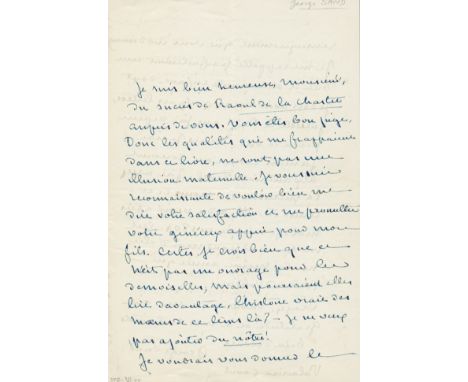 George SAND
Je suis bien heureuse, monsieur,
du succès de Raoul de la Chastre
auprès de vous. Vous êtes bon juge,
Donc les qualités qui me frappaient
dans ce livre, ne sont pas une
illusion maternelle. Je vous suis
reconnaissante de vouloir bien me
dire votre satisfaction et me promettre
votre généreux appui pour mon
fils. Certes, je crois bien que ce
n'est pas un ouvrage pour les
demoiselles, mais pourraient elles
lire davantage, l'histoire vraie des
mœurs de ce tems là? — je ne veux
pas ajouter du nôtre!
Je voudrais vous donner le